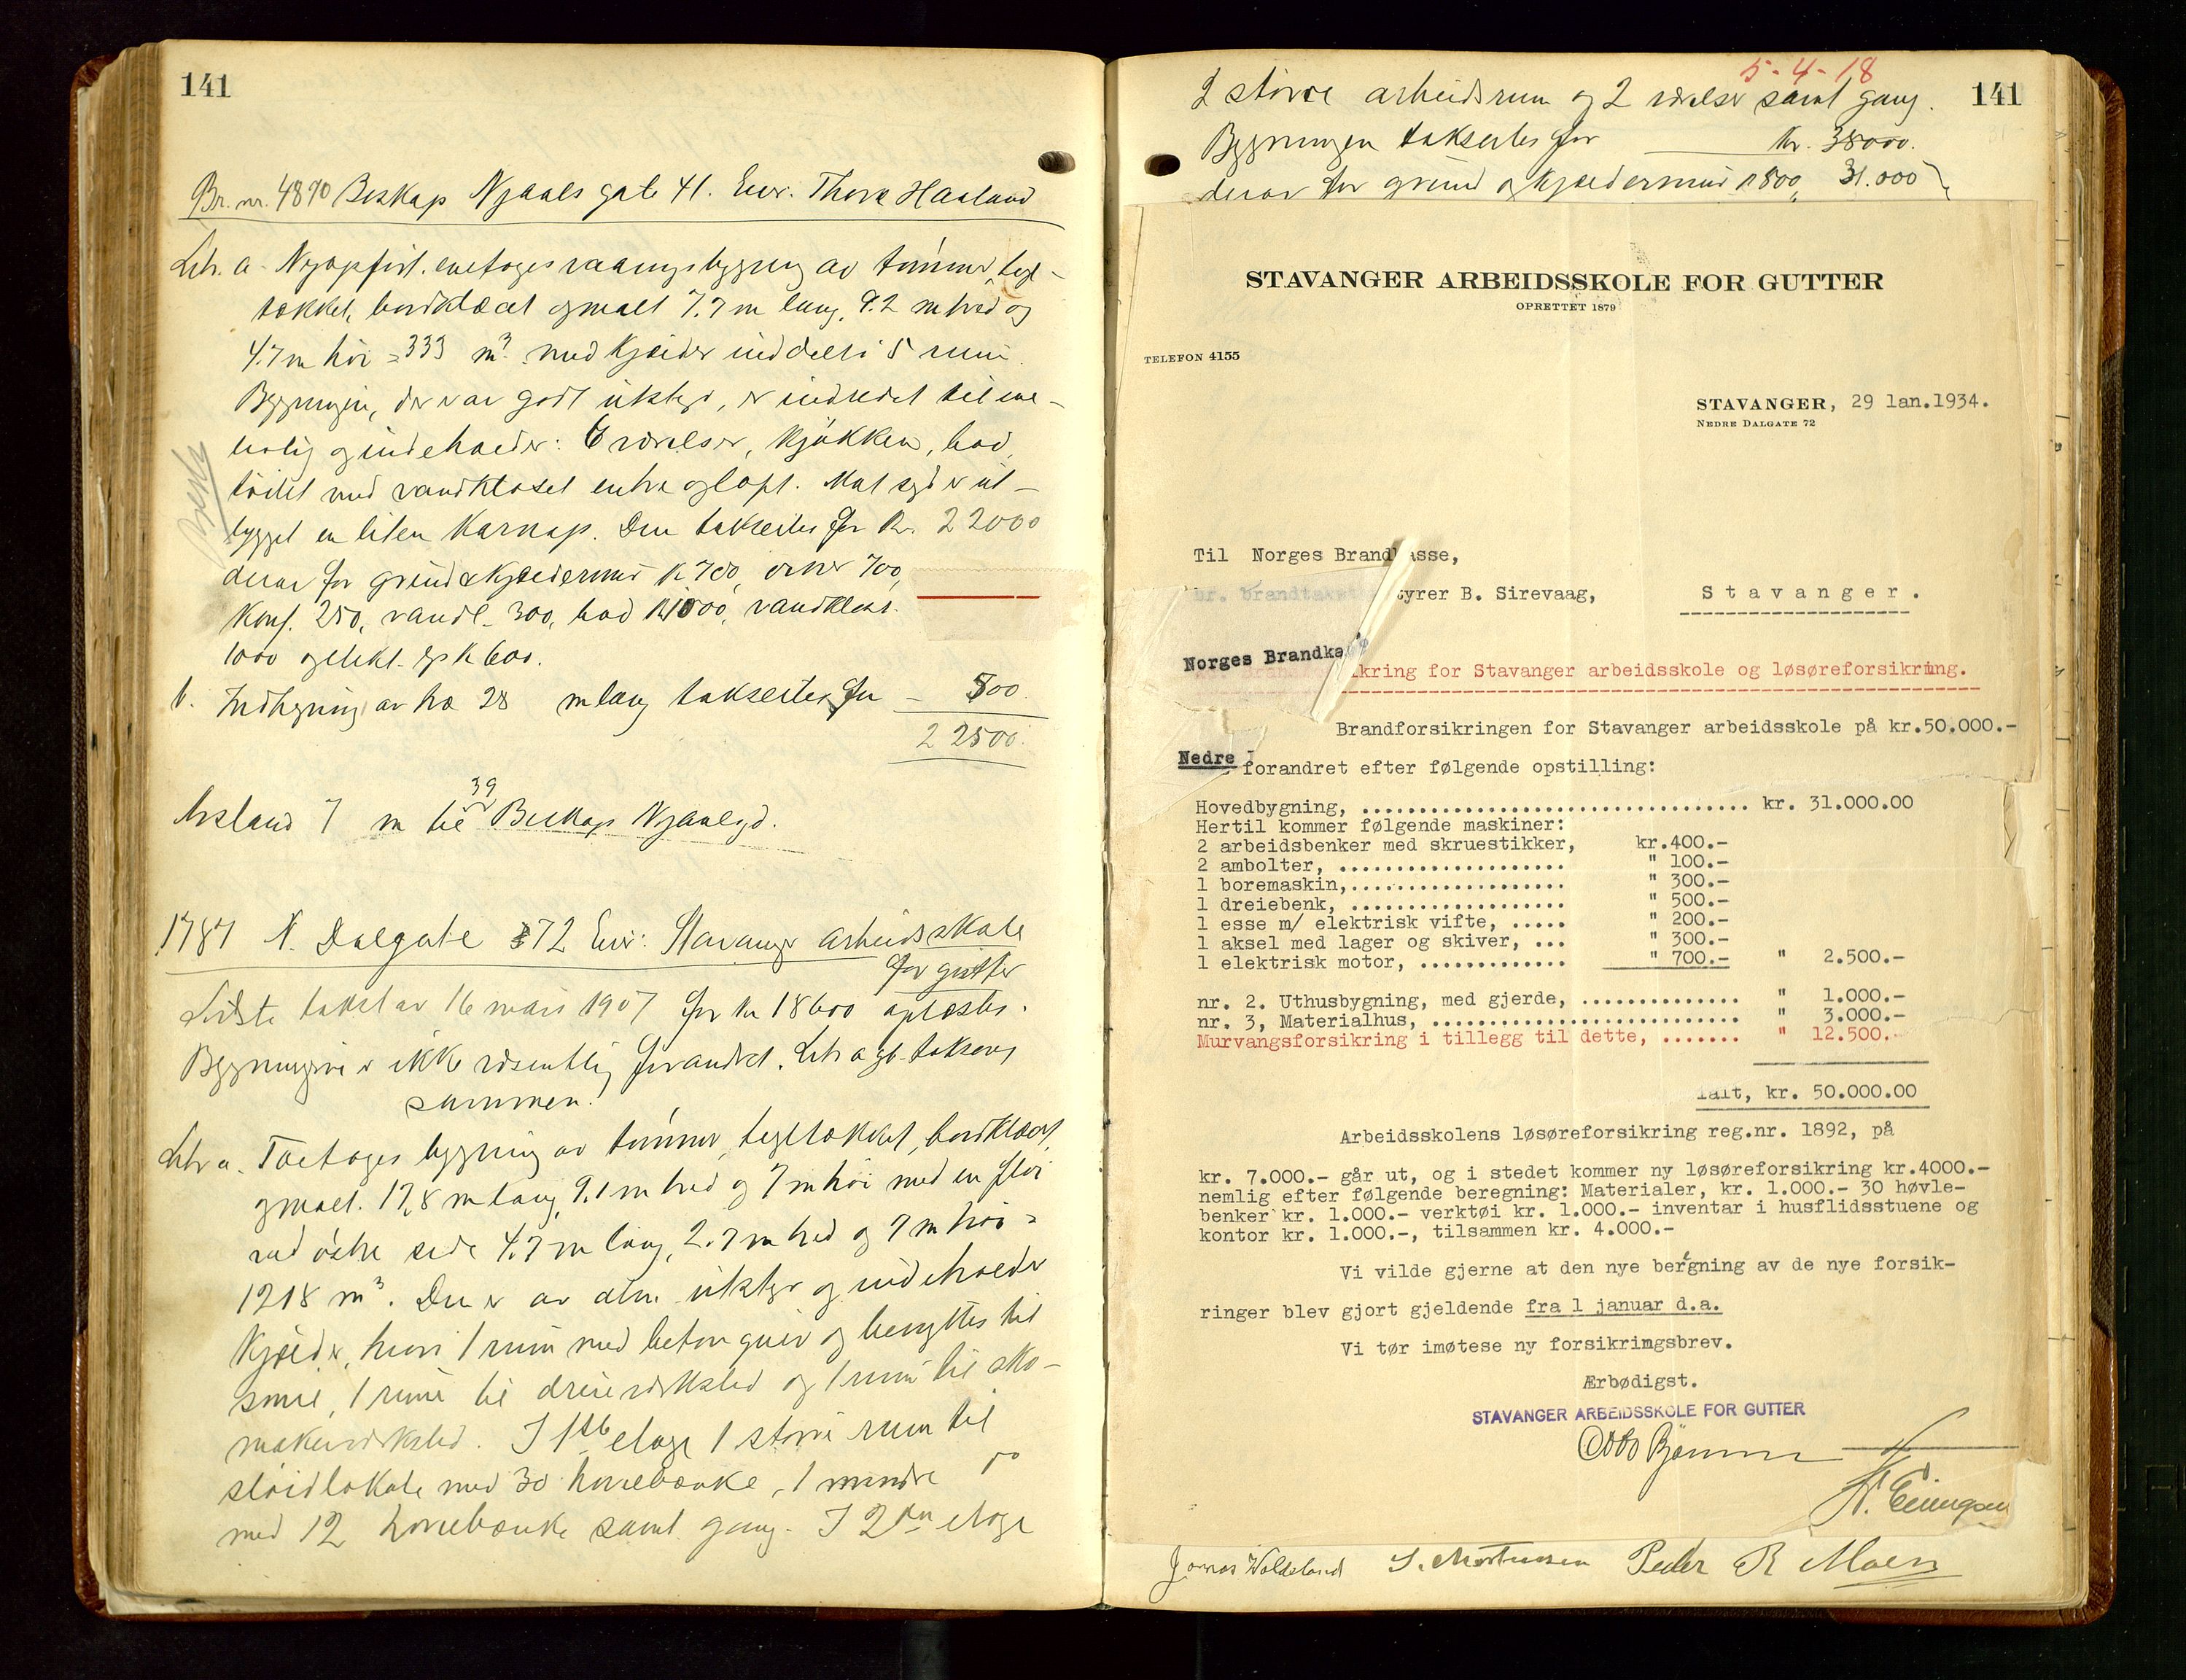 141
Br. nr. 4870 Biskop Njaals gate 41. Eier: Thora Haaland
Litr. a. Nyopført enetages vaaningsbygning av tømmer, tegl-
tækket, bordklædt og malt 7.7 m lang, 9.2 m bred og
4.7 m høi = 333 m³ med kjelder inddelt i 5 rum.
Bygningen, der var godt utstyr, er indredet til ene-
bolig og indeholder: 6 værelser, kjøkken, bad,
toilet med vandkloset entre og loft. Mot syd er ut-
bygget en liten karnap. Den takseres for kr. 22000
derav for grund & kjeldermur kr 700, ovner 700,
komf. 250, vandl. 300, bad kr 1000, vandklos.
1000 og elekt. lys kr 600.
b. Indhegning av træ 28 m lang takseres for — 500.
22500.
Avstand 7 m til 39 Biskop Njaalsgd.
1787 N. Dalgate 72 Eier: Stavanger arbeidsskole
for gutter
Sidste takst av 16 mars 1907 for kr 18600 oplæstes.
Bygningene er ikke væsentlig forandret. Litr a og b takseres
sammen.
Litr a. Toetages bygning av tømmer, tegltækket, bordklædt
og malt. 17,8 m lang, 9.1 m bred og 7 m høi med en fløi
ved østre side 4.7 m lang, 2.7 m bred og 7 m høi =
1218 m³. Den er av alm. utstyr og indeholder
kjelder, hvori 1 rum med betongulv og benyttes til
smie, 1 rum til dreieverksted og 1 rum til sko-
makerverksted. I 1ste etage 1 større rum til
sløidlokale med 30 høvlebænke, 1 mindre do
med 12 høvlebænke samt gang. I 2den etage
5-4-18
2 større arbeidsrum og 2 værelser samt gang. 141
Bygningen takseres for kr. 38000.
derav for grund og kjeldermur 1800, 31.000
STAVANGER ARBEIDSSKOLE FOR GUTTER
OPRETTET 1879
TELEFON 4155
STAVANGER, 29 Jan.1934.
NEDRE DALGATE 72
Til Norges Brandkasse,
hr. brandtakst tyrer B. Sirevaag, Stavanger.
Norges Brandka
kring for Stavanger arbeidsskole og løsøreforsikring.
Brandforsikringen for Stavanger arbeidsskole på kr.50.000.-
Nedre
forandret efter følgende opstilling:
Hovedbygning, .................................. kr. 31.000.00
Hertil kommer følgende maskiner:
2 arbeidsbenker med skruestikker, kr.400.-
2 ambolter, .................... " 100.-
1 boremaskin,................... " 300.-
1 dreiebenk, ................... " 500.-
1 esse m/ elektrisk vifte, ..... " 200.-
1 aksel med lager og skiver, ... " 300.-
1 elektrisk motor, ............. " 700.- " 2.500.-
nr. 2. Uthusbygning, med gjerde, .............. " 1.000.-
nr. 3, Materialhus, ........................... " 3.000.-
Murvangsforsikring i tillegg til dette, ....... " 12.500.-
ialt, kr. 50.000.00
Arbeidsskolens løsøreforsikring reg.nr. 1892, på
kr. 7.000.- går ut, og i stedet kommer ny løsøreforsikring kr.4000.-
nemlig efter følgende beregning: Materialer, kr. 1.000.- 30 høvle-
benker kr. 1.000.- verktøi kr. 1.000.- inventar i husflidsstuene og
kontor kr. 1.000.-, tilsammen kr. 4.000.-
Vi vilde gjerne at den nye beregning av de nye forsik-
ringer blev gjort gjeldende fra 1 januar d.a.
Vi tør imøtese ny forsikringsbrev.
Ærbødigst.
STAVANGER ARBEIDSSKOLE FOR GUTTER
Jonas Woldeland S. Mortensen Peder R Moen